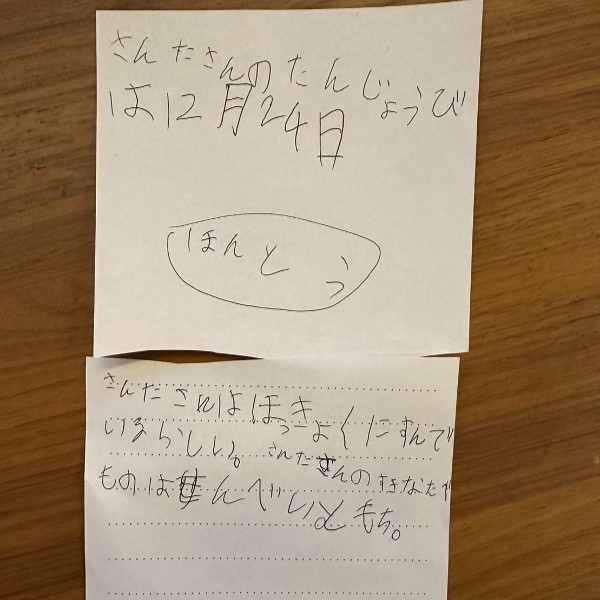 さんたさんのたんじょうび
は12月24日
ほんとう
さんたさんはほっきょくにすんで
いるらしい。さんたさんのすきなたべ
ものはせんべいともち。